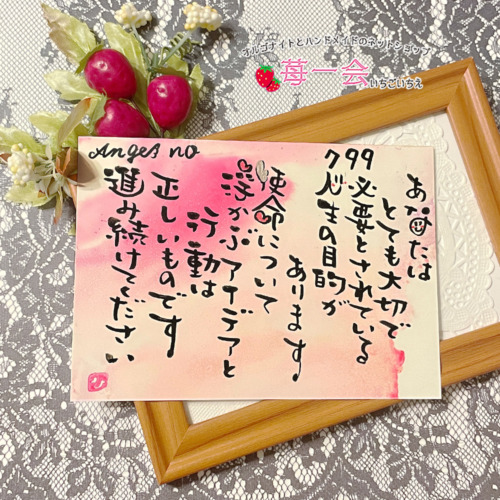 オルゴナイトとハンドメイドのネットショップ
苺一会 いちごいちえ
Anges no
799
あなたは
とても大切で
必要とされている
人生の目的が
あります
使命について
浮かぶアイデアと
行動は
正しいものです
進み続けてください